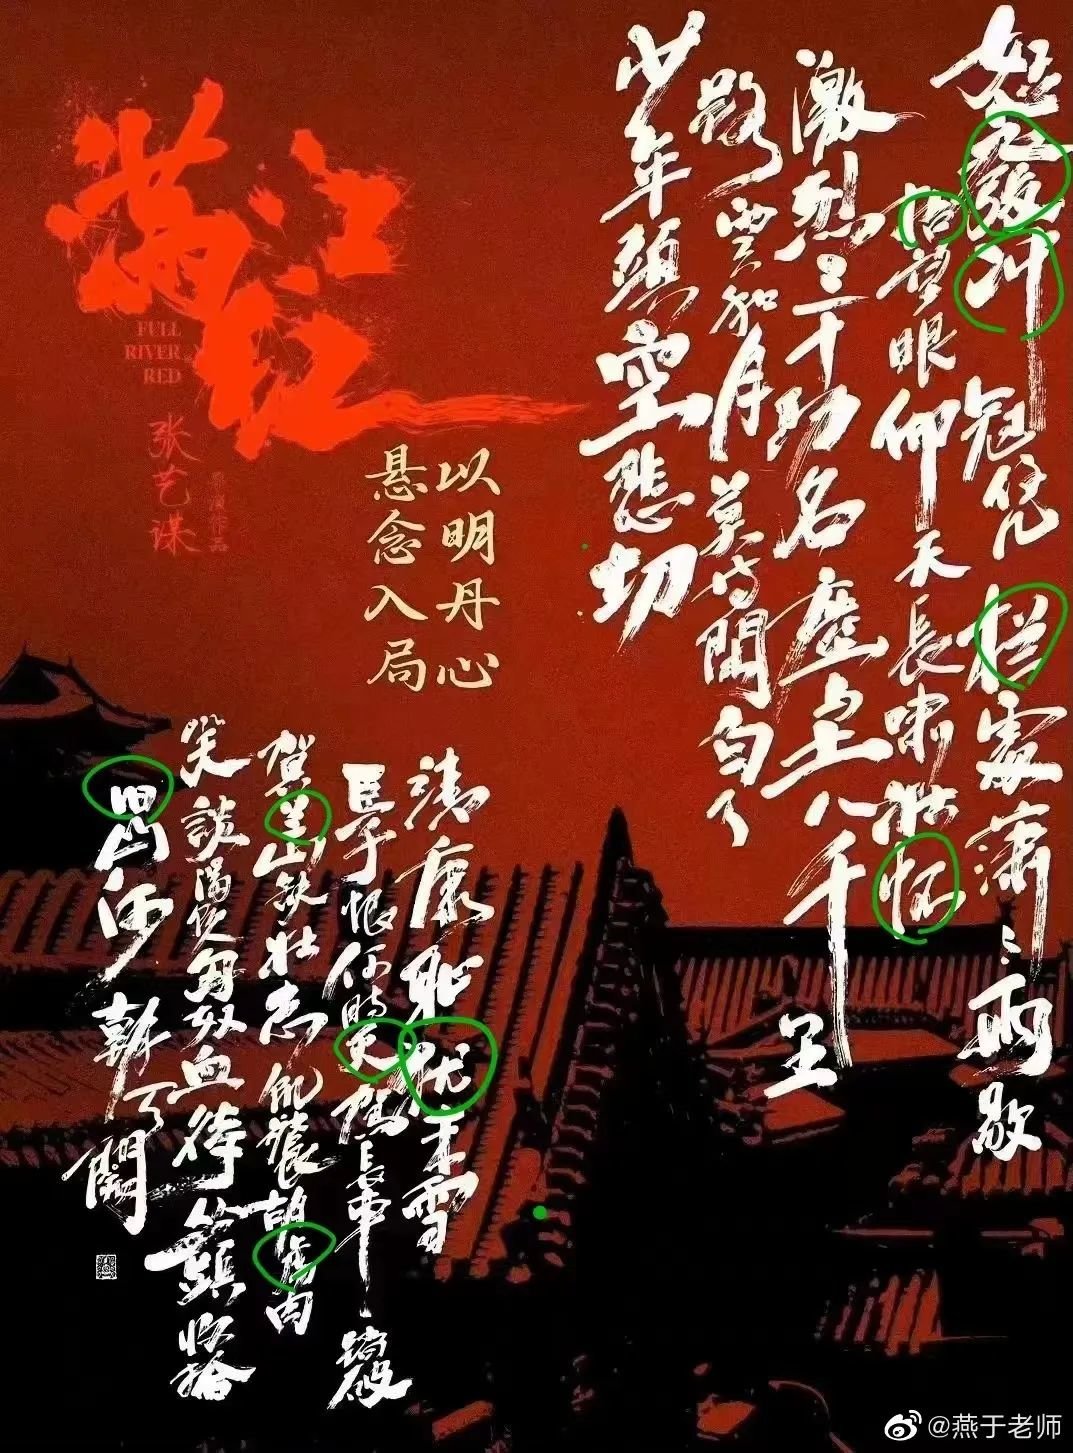 怒髮冲冠凭栏處潇々雨歇
抬望眼仰天長啸壮怀
激烈三十功名塵與土八千里
路雲和月莫等閒白了
少年頭空悲切
满江红
FULL
RIVER
RED
张艺谋
导演作品
以明丹心
悬念入局
靖康耻犹未雪
臣子恨何時灭駕長車踏破
贺兰山缺壮志飢餐胡虏肉
笑談渴饮匈奴血待從頭收拾
旧山河朝天闕
@燕于老师